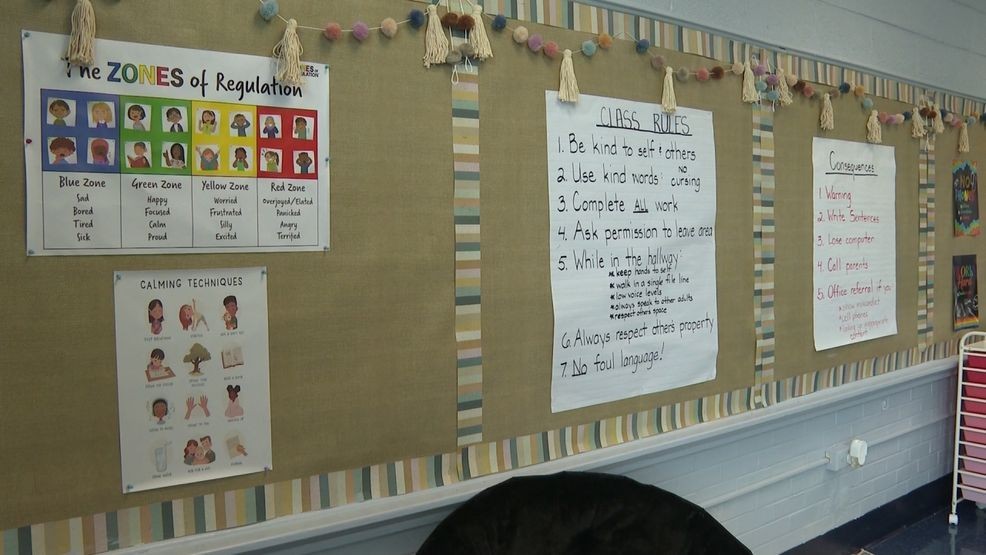 The ZONES of Regulation
Blue Zone
Sad
Bored
Tired
Sick
Green Zone
Happy
Focused
Calm
Proud
Yellow Zone
Worried
Frustrated
Silly
Excited
Red Zone
Overjoyed/Elated
Panicked
Angry
Terrified
CALMING TECHNIQUES
CLASS RULES
1. Be kind to self & others
2. Use kind words: NO cursing
3. Complete ALL work
4. Ask permission to leave area
5. While in the hallway:
* keep hands to self
* walk in a single file line
* low voice levels
* always speak to other adults
* respect others space
6. Always respect other's property
7. No foul language!
Consequences
1. Warning
2. Write Sentences
3. Lose computer
4. Call parents
5. Office referral if you
* show misconduct
* cell phones